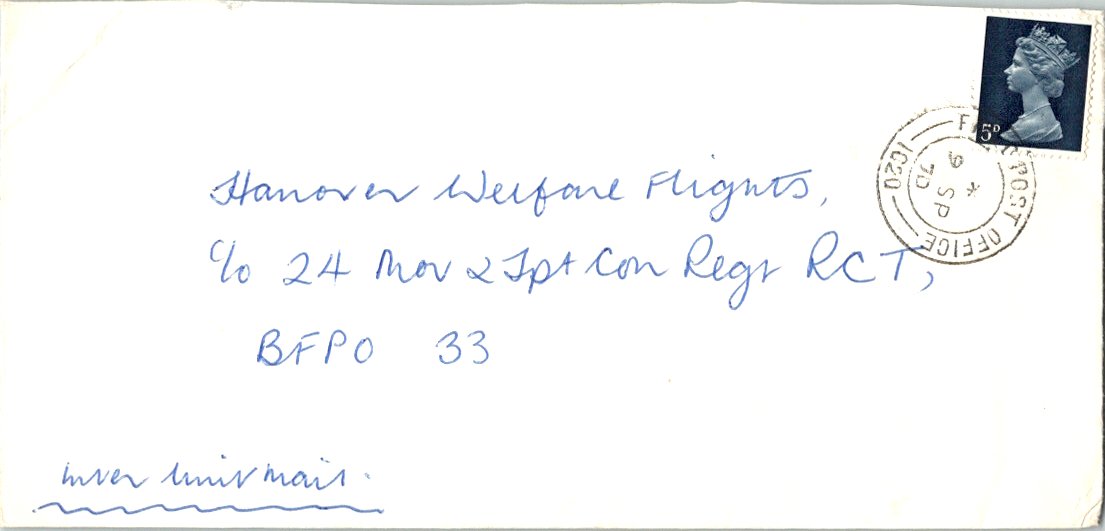 5D
FIELD POST OFFICE
1020
9
SP
70
Hanover Welfare Flights,
c/o 24 Mov & Tpt Con Regt RCT,
BFPO 33
Inter Unit Mail.